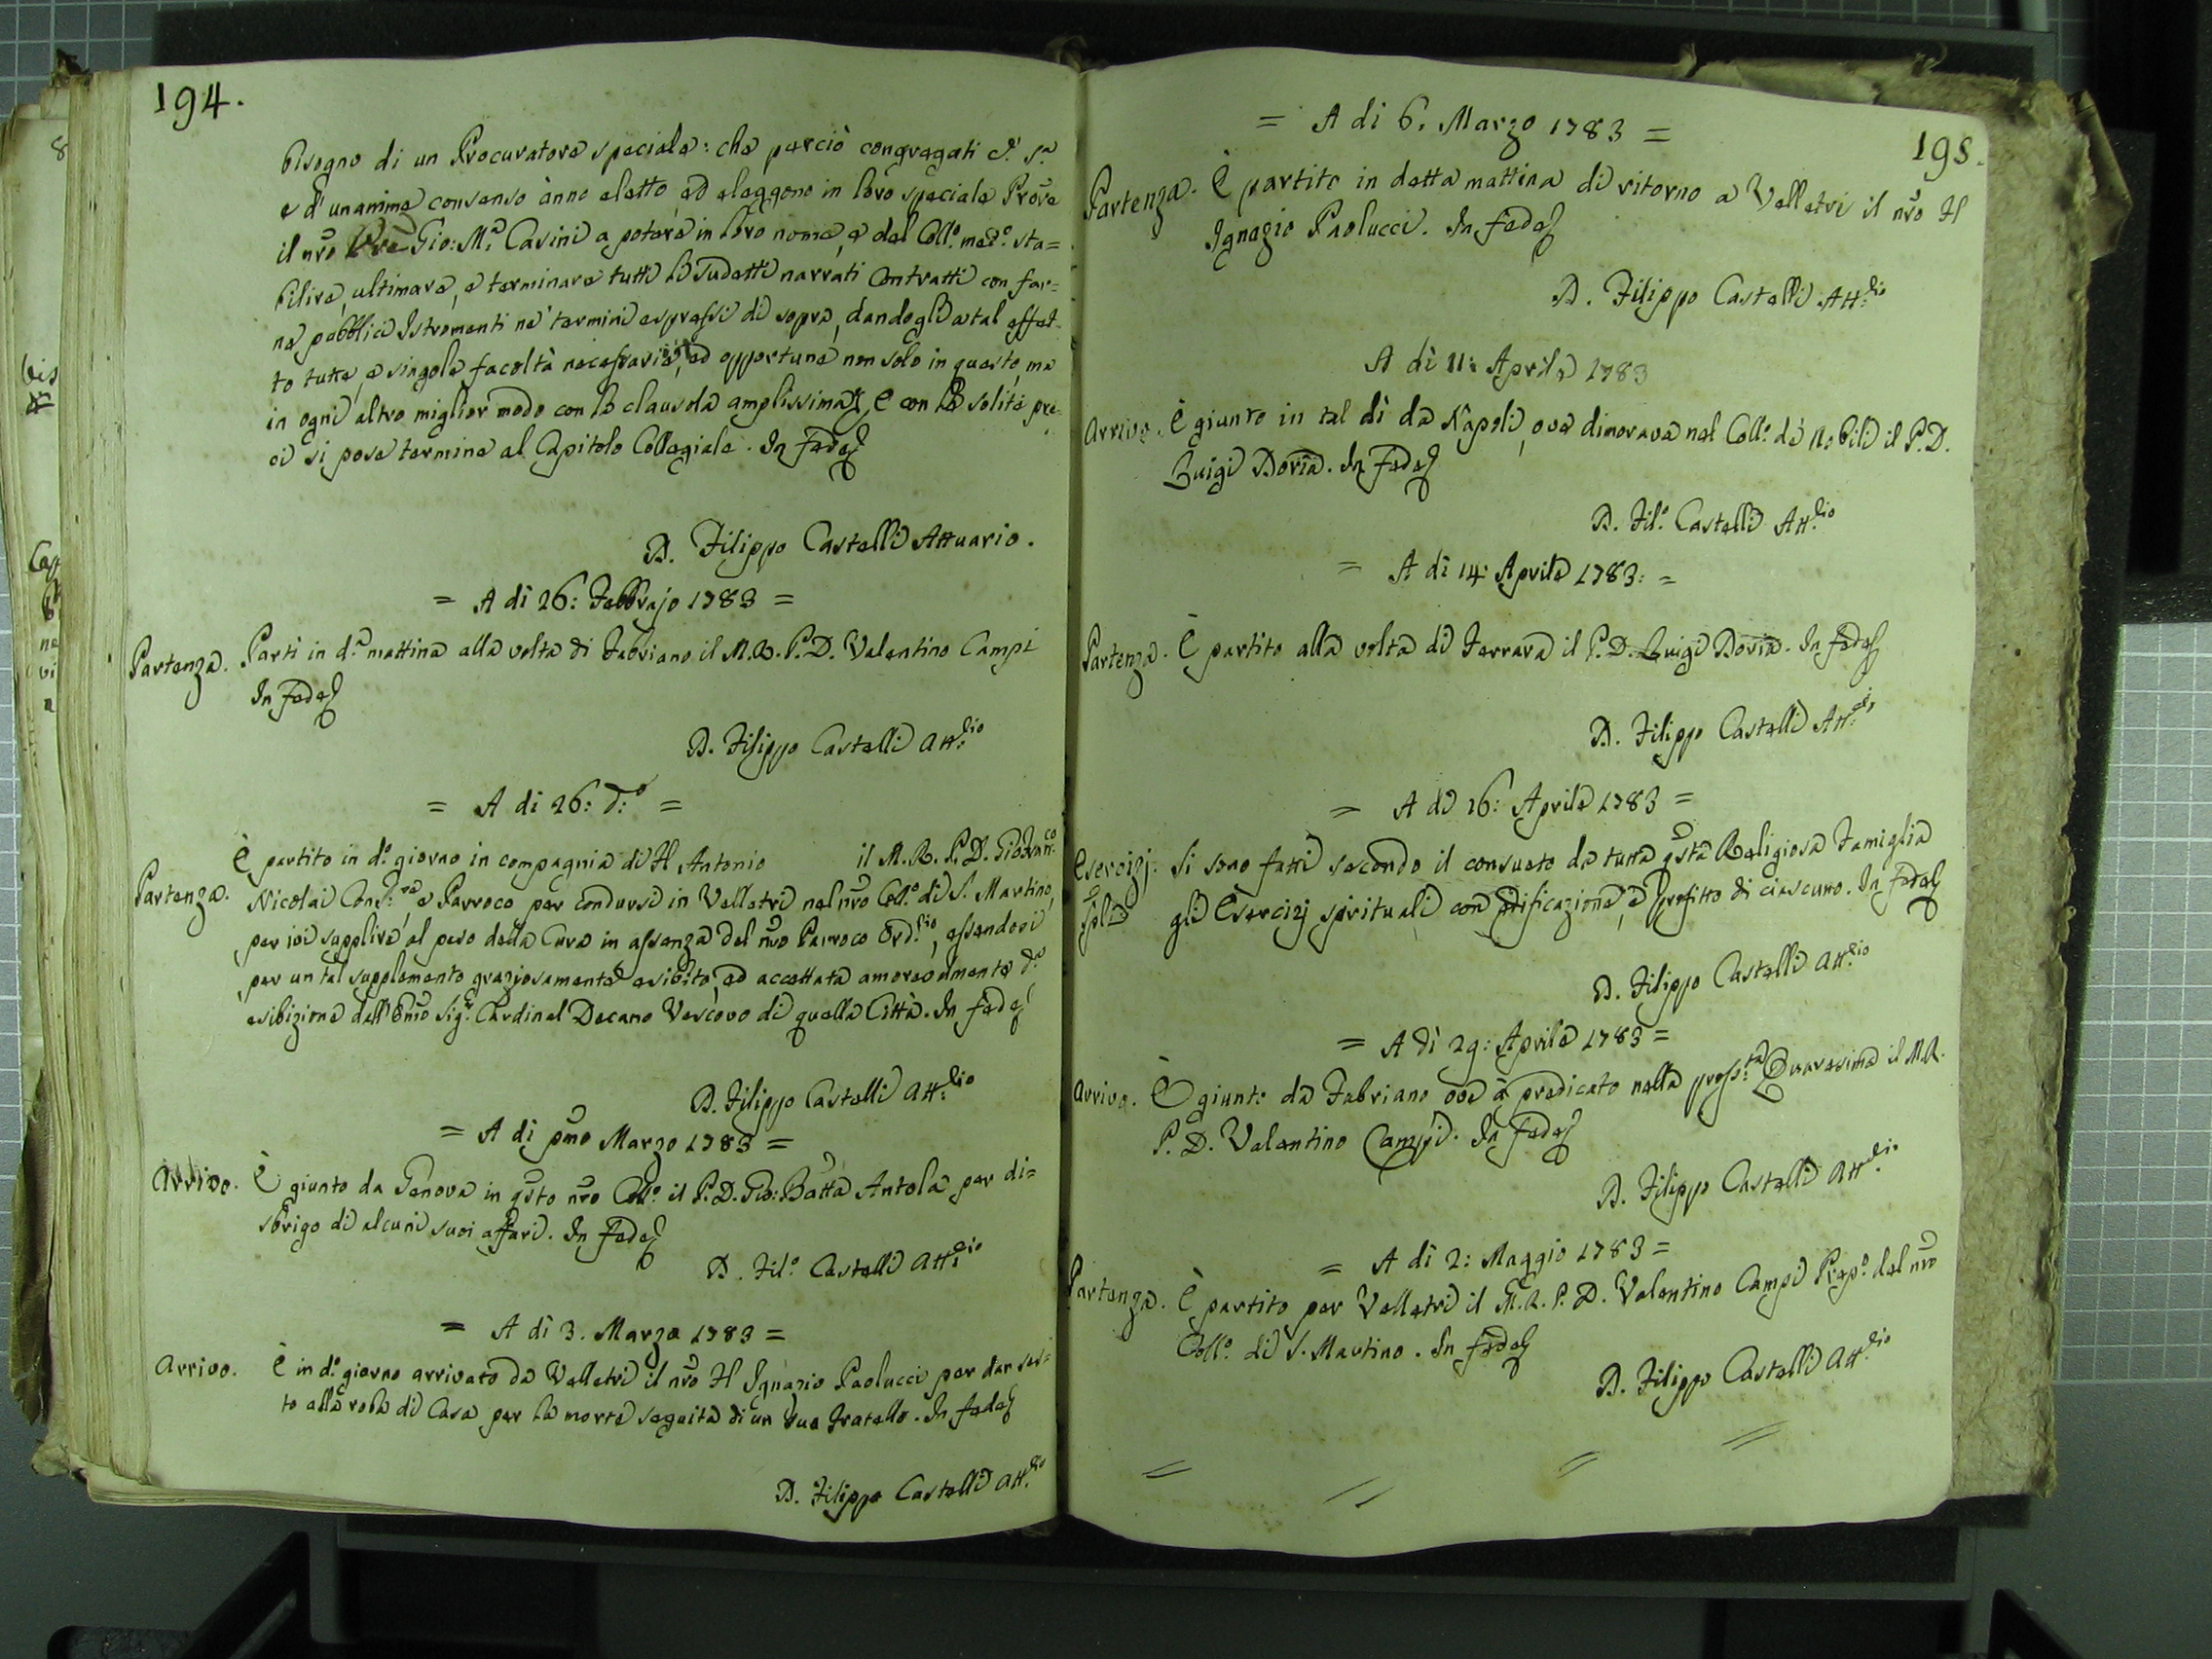 194.
bisogno di un Procuratore speciale: che perciò congregati c. s.a
e d'unanime consenso ànno eletto, ed eleggono in loro speciale Prõre
il nrõ Prẽ Gio: M.a Casini a potere in loro nome, e del Coll.o med.o sta=
bilire, ultimare, e terminare tutti li sudetti narrati Contratti con far=
ne pubblici Istromenti ne' termini espressi di sopra, dandogli a tal effet-
to tutte, e singole facoltà necessarie, ed opportune non solo in questo, ma
in ogni altro miglior modo con le clausole amplissime, e con le solite pre-
ci si pose termine al Capitolo Collegiale. In fede
D. Filippo Castelli Attuario.
= A di 26: Febbrajo 1783 =
Partenza. Parti in d.a mattina alla volta di Fabriano il M. R. P. D. Valentino Campi
In fede
D. Filippo Castelli Att.rio
= A di 26: d.o =
Partenza. È partito in d.o giorno in compagnia di Fl Antonio il M. R. P. D. Giovan: co
Nicolai Cons:re, e Parroco per condursi in Velletri nel nrõ Coll.o di S. Martino,
per ivi supplire al peso della Cura in assenza del nrõ Parroco Ord.rio, essendosi
per un tal supplemento graziosamente esibito, ed accettata amorevolmente d.a
esibizione dall'Emõ Sig.r Cardinal Decano Vescovo di quella Città. In fede
D. Filippo Castelli Att.rio
= A di pmõ Marzo 1783 =
Arrivo. È giunto da Genova in qsto nrõ Coll.o il P. D. Gio: Batta Antola per di=
sbrigo di alcuni suoi affari. In fede
D. Fil.o Castelli Att.rio
= A di 3. Marzo 1783 =
Arrivo. È in d.o giorno arrivato da Velletri il nrõ Fl Ignazio Paolucci per dar ses=
to alla roba di Casa per la morte seguita di un suo Fratello. In fede
D. Filippo Castelli Att.rio
195.
= A di 6. Marzo 1783 =
Partenza. È partito in detta mattina di ritorno a Velletri il nrõ Fl
Ignazio Paolucci. In fede
D. Filippo Castelli Att.rio
A di 11: Aprile 1783
Arrivo. È giunto in tal dì da Napoli, ove dimorava nel Coll.o de' Nobili il P. D.
Luigi Doria. In fede
D. Fil.o Castelli Att.rio
= A di 14: Aprile 1783: =
Partenza. È partito alla volta di Ferrara il P. D. Luigi Doria. In fede
D. Filippo Castelli Att.rio
= A di 16: Aprile 1783 =
Esercizj Si sono fatti secondo il consueto da tutta qstã Religiosa Famiglia
gli Esercizj spirituali con edificazione, e profitto di ciascuno. In fede
D. Filippo Castelli Att.rio
= A dì 29: Aprile 1783 =
Arrivo. È giunto da Fabriano ove à predicato nella pross:ta Quaresima il M. R.
P. D. Valentino Campi. In fede
D. Filippo Castelli Att.rio
= A dì 2: Maggio 1783 =
Partenza. È partito per Velletri il M. R. P. D. Valentino Campi Prep.o del nrõ
Coll.o di S. Martino. In fede
D. Filippo Castelli Att.rio